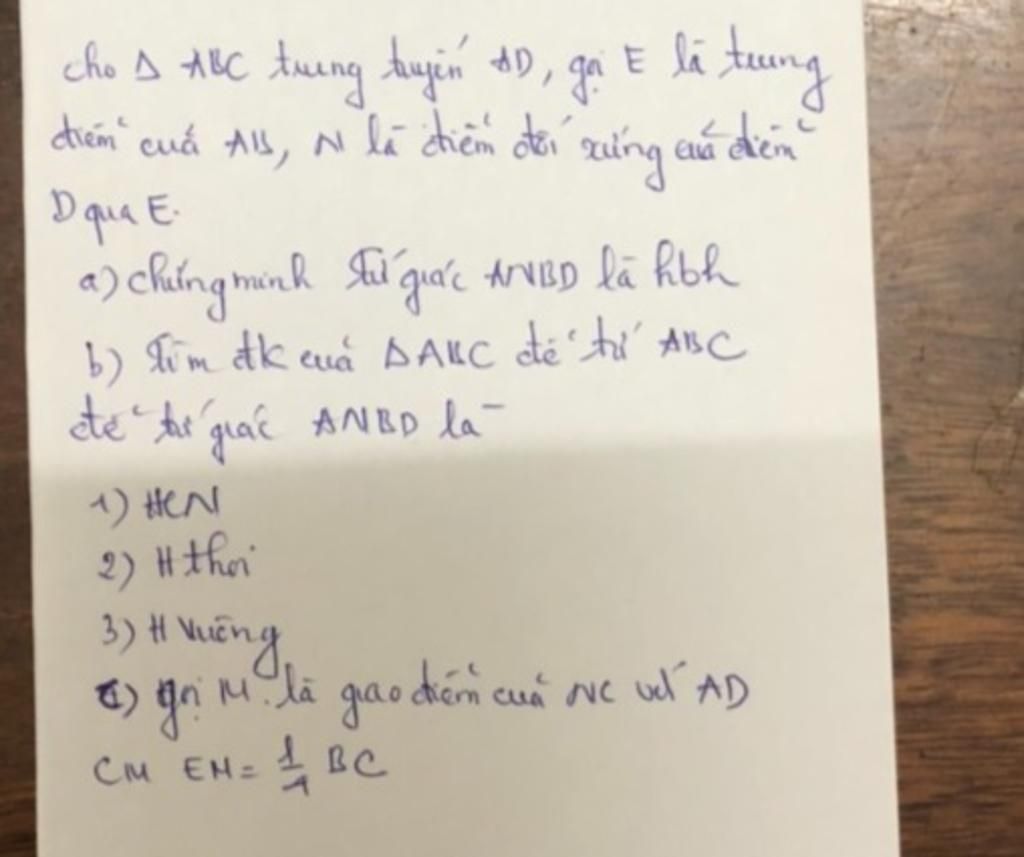 cho Δ ABC trung tuyến AD, gọi E là trung
điểm của AB, N là điểm đối xứng của điểm
D qua E.
a) chứng minh tứ giác ANBD là hbh
b) tìm đk của ΔABC để tứ ABC
để tứ giác ANBD là
1) HCN
2) H thoi
3) H vuông
c) gọi M là giao điểm của NC với AD
CM EM = 1/4 BC